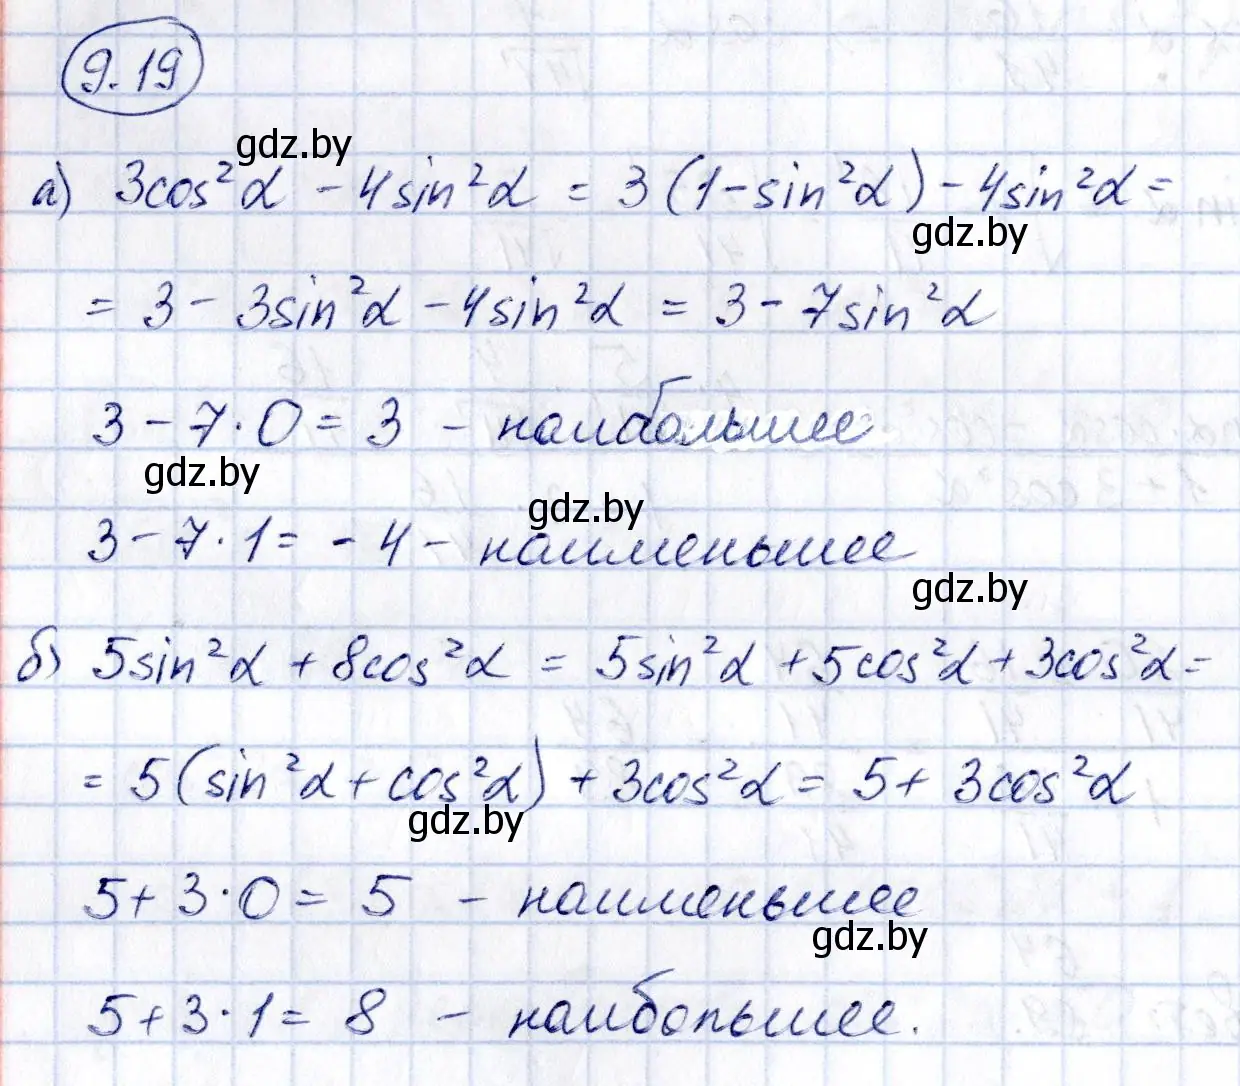 9.19
gdz.by
а) 3cos²α - 4sin²α = 3(1-sin²α) - 4sin²α =
gdz.by
= 3 - 3sin²α - 4sin²α = 3 - 7sin²α
3 - 7·0 = 3 - наибольшее
gdz.by
gdz.by
3 - 7·1 = -4 - наименьшее
gdz.by
б) 5sin²α + 8cos²α = 5sin²α + 5cos²α + 3cos²α =
= 5(sin²α + cos²α) + 3cos²α = 5 + 3cos²α
gdz.by
5 + 3·0 = 5 - наименьшее
gdz.by
5 + 3·1 = 8 - наибольшее.